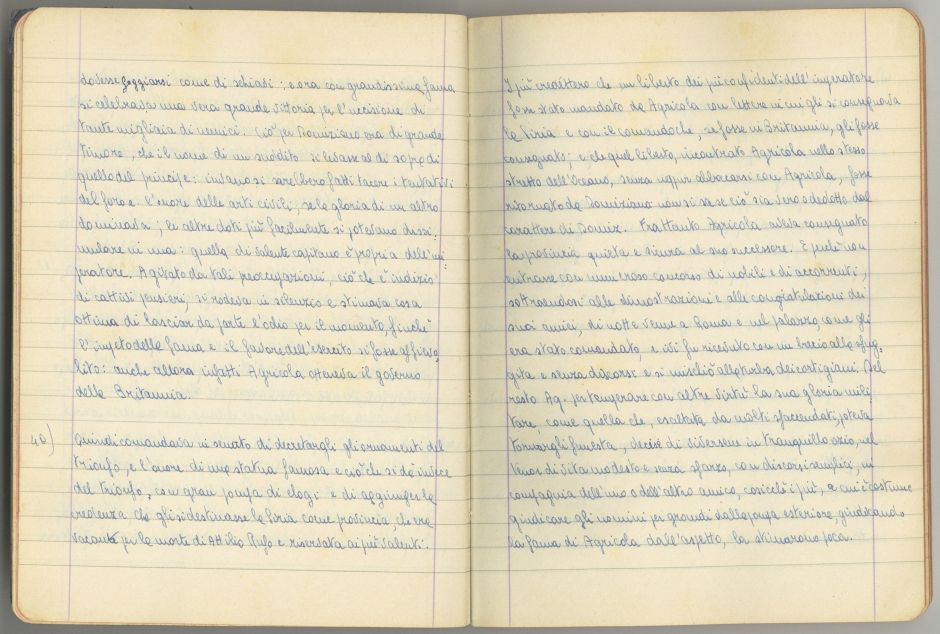 dovesse foggiarsi come di schiavi; e ora con grandissima fama
si celebrava una vera grande vittoria per l'uccisione di
tante migliaia di nemici. Ciò per Domiziano era di grande
timore, che il nome di un suddito si levasse al di sopra di
quello del principe: invano si sarebbero fatti tacere i tentativi
del foro e l'onore delle arti civili, se la gloria di un altro
dominava; le altre doti più facilmente si potevano dissi=
mulare ma una: quella di valente capitano è propria dell'im=
peratore. Agitato da tali preoccupazioni, ciò che è indizio
di cattivi pensieri, si rodeva in silenzio e stimava cosa
ottima di lasciar da parte l'odio per il momento, finchè
l'impeto della fama e il favore dell'esercito si fosse affievo=
lito: anche allora infatti Agricola otteneva il governo
della Britannia.
40) Quindi comandava in senato di decretargli gli ornamenti del
trionfo, e l'onore di una statua famosa e ciò che si dà invece
del trionfo, con gran pompa di elogi e di aggiungere la
credenza che gli si destinasse la Siria come provincia che era
vacante per la morte di Attilio Rufo e riservata ai più valenti.
I più credettero che un liberto dei più confidenti dell'imperatore
fosse stato mandato da Agricola con lettere in cui gli si consegnava
la Siria e con il comando che, se fosse in Britannia, gli fosse
consegnato; e che quel liberto, incontrato Agricola nello stesso
stretto dell'Oceano, senza neppur abboccarsi con Agricola, fosse
ritornato da Domiziano non si sa se ciò sia vero o dedotto dal
carattere di Domiz. Frattanto Agricola aveva consegnato
la provincia quieta e sicura al suo successore. E perchè non
entrasse con numeroso concorso di nobili e di accorrenti,
sottraendosi alle dimostrazioni e alle congratulazioni dei
suoi amici, di notte venne a Roma e nel palazzo, come gli
era stato comandato, e ivi fu ricevuto con un bacio alla sfug=
gita e senza discorsi e si mischiò alla turba dei cortigiani. Del
resto Ag. per temperare con altre virtù la sua gloria mili
tare, come quella che, esaltata da molti sfaccendati, poteva
tornargli funesta, decise di vivere in tranquillo ozio, nel
tenor di vita modesto e senza sfarzo, con discorsi semplici, in
compagnia dell'uno o dell'altro amico, cosicchè i più, a cui è costume
giudicare gli uomini per grandi dalla pompa esteriore, giudicando
la fama di Agricola dall'aspetto, la stimarono poca.